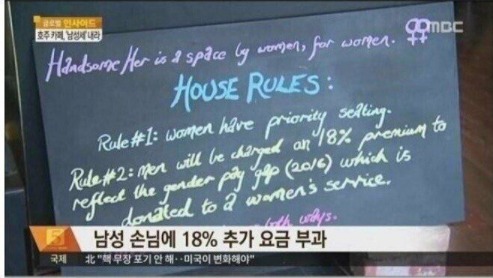 글로벌 인사이드
호주 카페, '남성세' 내라
MBC
Handsome Her is a space by women, for women.
HOUSE RULES:
Rule #1: women have priority seating.
Rule #2: men will be charged an 18% premium to
reflect the gender pay gap (2016) which is
donated to a women's service.
both ways.
남성 손님에 18% 추가 요금 부과
국제
北 "핵 무장 포기 안 해‥미국이 변화해야"